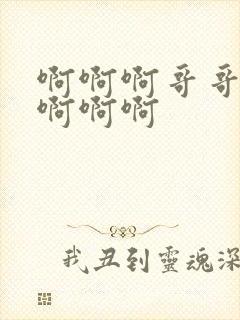 啊啊啊哥哥
啊啊啊
我丑到靈魂深